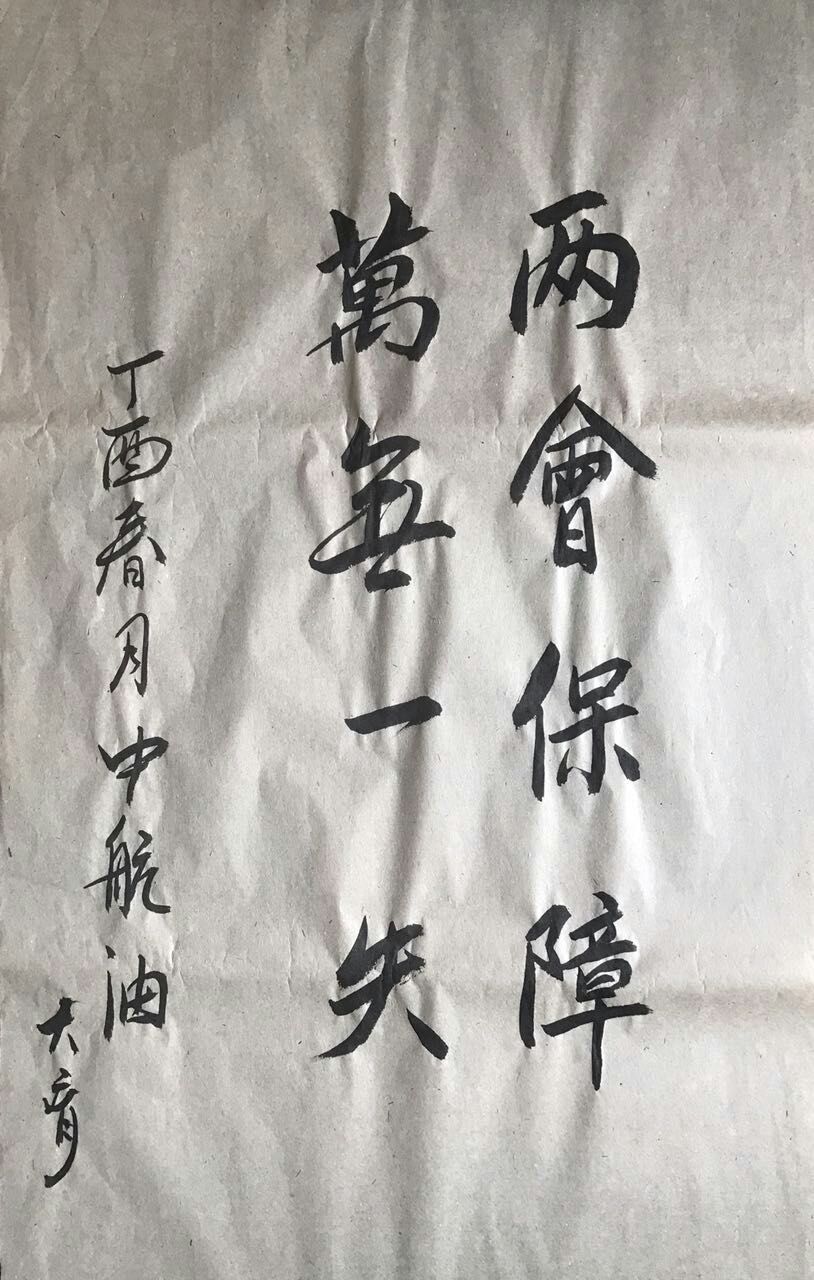 两會保障
萬無一失
丁酉春月中航油
大育